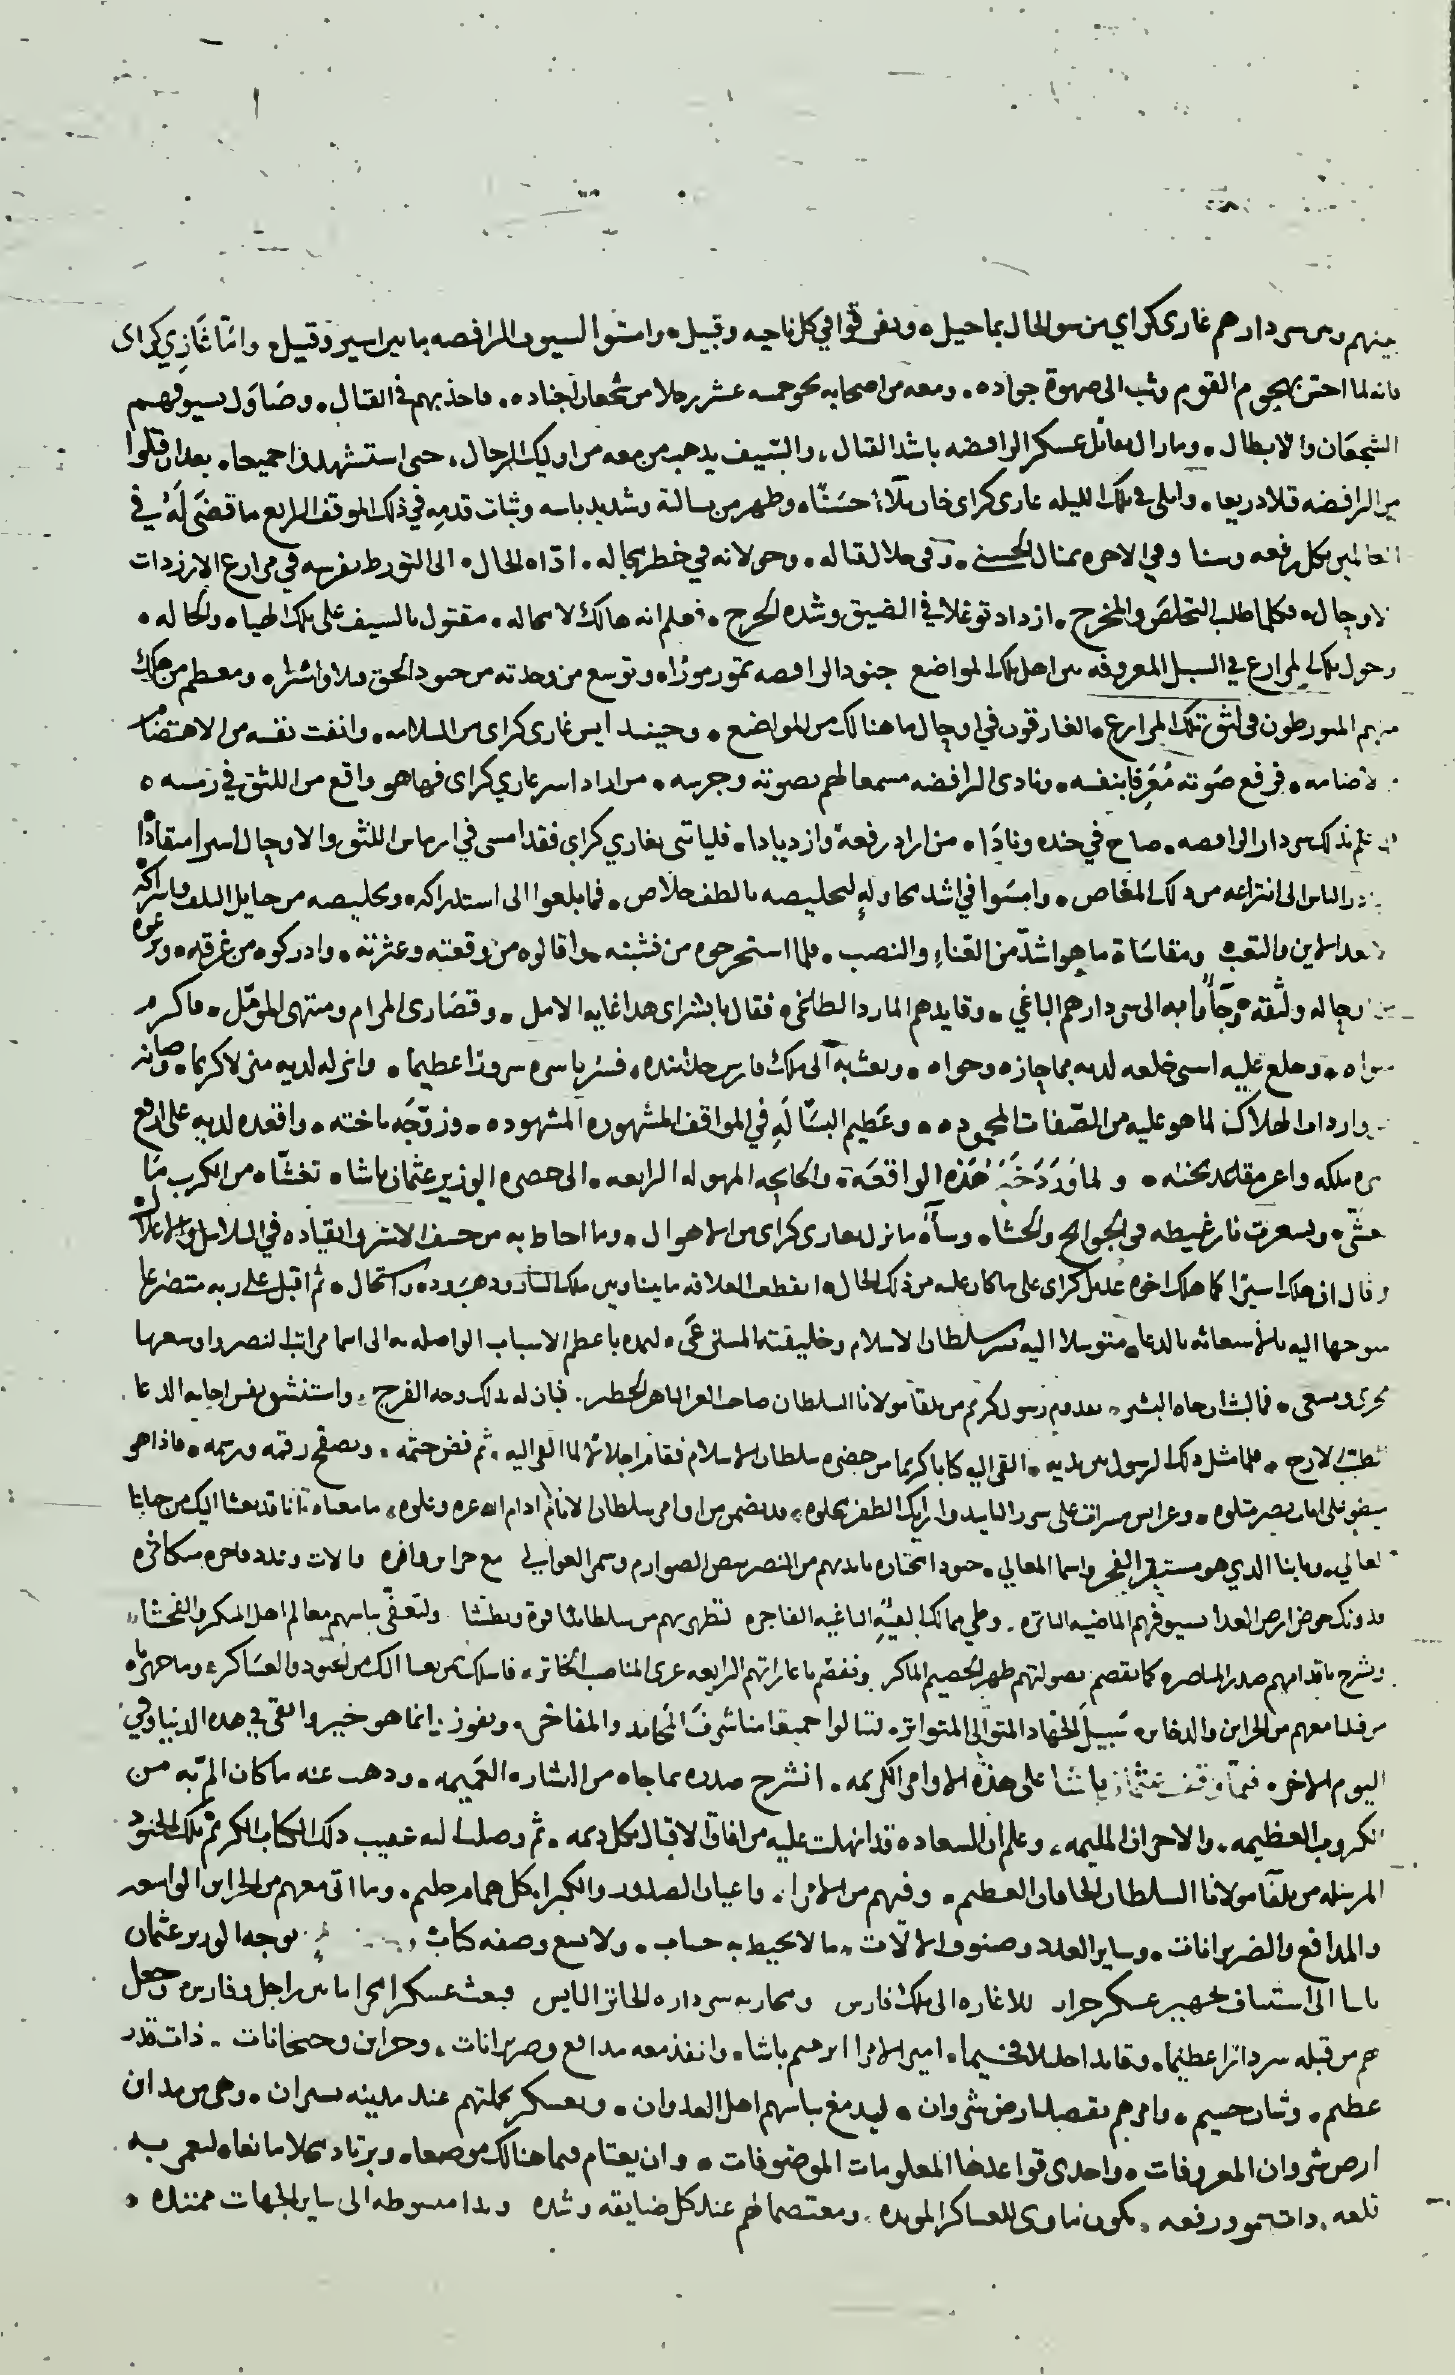 بينهم وبين سردارهم غازي كراي من سو الحال بما حيل، وتفرقوا في كل ناحيه وقبيل، وامسوا السيوف الرافضه ما بين اسير وقتيل، واما غازي كراى
فانه لما احس بهجوم القوم وثب الى صهوة جواده، ومعه من اصحابه نحو خمسه عشر رجلا من شجعان اجناده، فاخذ بهم في القتال، وصاول بسيوفهم
الشجعان والابطال، وما زال يقاتل عسكر الرافضه باشد القتال، والسيف يذهب من معه من اوليك الرجال، حتى استشهدوا جميعا، بعد ان قتلوا
من الرافضه قتلا ذريعا، وابلى في تلك الليله غازى كراى خان بلاء حسنا، وظهر من بسالته وشديد باسه وثبات قدمه في ذلك الموقف الرايع ما قضى له في
العالمين بكل رفعه وسنا وفي الاخره بمنال الحسنى، وفي خلال قتاله، وجولانه في خطر مجاله، اداه الحال، الى التورط بفرسه في مزارع الارز ذات
الاوجال، فكلما طلب التخلص والمخرج، ازداد توغلا في الضيق وشده الحرج، فعلم انه هالك لا محاله، مقتول بالسيف على تلك الهيا، والحاله،
وحول تلك المزارع في السبل المعروفه بين اهل تلك المواضع جنود الرافضه تمور مورا، وتوسع من وجدته من جنود الحق قتلا واسرا، ومعظم من هلك
منهم المتورطون في لثق تلك المزارع، الغارقون في اوجال ما هنالك من المواضع، وحينيد ايس غازى كراى من السلامه، وانفت نفسه من الاهتضام
لاضامه، فرفع صوته معرفا بنفسه، ونادى الرافضه مسمعا لهم بصوته وجرسه، من اراد اسر غازي كراى فها هو واقع من اللثق في رمسه،
فلما علم بذلك سردار الرافضه، صاح في جنده ونادا، من اراد رفعة وازديادا، فليات بغازي كراي فقد امسى في ارماس اللثق والاوجال اسيرا منقادا
فبدر الناس الى انتزاعه من ذلك المغاص، وامسوا في اشد محاوله لتخليصه بالطف خلاص، فما بلغوا الى استدراكه، وتخليصه من حبايل التلف واشراكه
الا بعد الاين والتعب ومقاساة ما هو اشد من العناء والنصب، فلما استخرجوه من نشبته، واقالوه من وقعته وعثرته، وادركوه من غرقه، ونزعوه
من اوجاله ولثقه، وجاوا به الى سردارهم الباغي، وقايدهم المارد الطاغي، فقال يا بشراى هذا غايه الامل، وقصارى المرام ومنتهى المومل، فاكرم
مثواه، وخلع عليه اسنى خلعه لديه مما حازه وحواه، وبعث به الى ملك فارس خدابنده، فسر باسره سرورا عظيما، وانزله لديه منزلا كريما، وصانه
عن وارد الهلاك لما هو عليه من الصفات المحموده، وعظيم البساله في المواقف المشهوره المشهوده، وزوجه باخته، واقعده لديه على ارفع
سرير ملكه واعز مقاعد تخته، ولما ورد خبر هذه الواقعة، والجايحه المهوله الرايعه، الى حضره الوزير عثمان باشا، تغشاه من الكرب ما
غشى، وتسعرت نار غيظه في الجوانح والحشا، وساه ما نزل بغازى كراى من الاهوال، وما احاط به من خسف الاسر والقياده في السلاسل والاغلال
وقال ان هلك اسيرا كما هلك اخوه عديل كراى على ما كان عليه من ذلك الحال، انقطعت العلاقه ما بيننا وبين ملك التتار وذهب وده واستحال، ثم اقبل على ربه متضرعا
متوجها اليه بالاستعانه بالدعا، متوسلا اليه بسر سلطان الاسلام وخليفته المسترعى، ليمده باعظم الاسباب الواصله به الى اسما مراتب النصر واوسعها
مجرى ومسعى، فما لبث ان جاه البشير، بقدوم رسول كريم من تلقا مولانا السلطان صاحب العز الباهر الخطير، فبان له بذلك وجه الفرج، واستنشق نفس اجابه الدعا
الطيب الارج، فلما مثل ذلك الرسول بين يديه، القى اليه كتابا كريما من حضره سلطان الاسلام فقام اجلالا لما القى اليه، ثم فض ختمه، وتصفح رقمه ورسمه، فاذا هو
ينطوى على ايات نصر متلوه، وعرايس مسرات على سرر التاييد وارايك الظفر مجلوه، قد تضمن من اوامر سلطان الانام ادام الله عزه وعلوه، ما معناه انا قد بعثنا اليك من جنابنا
العالي، وبابنا الذي هو مستقر الفخر واسما المعالي، جنودا مختاره نامدهم من النصر ببيض الصوارم وسمر العوالي مع خزاين وافره والات وعدد فاخره متكاثره
فدونك خوض ارض العدا بسيوفهم الماضيه الباتره، وطي ممالك الفئة الباغيه الفاجره لتظهر بهم من سلطاننا قوة وبطشا ولتعفى باسهم معالم اهل المنكر والفحشا،
وتشرح باقدامهم صدر الملة الناصره كما تقصم بصولتهم ظهر الخصيم الماكر وتفصم باغاراتهم الرايعه عرى المناصب الخاتر، فاسلك بمن بعثنا اليك من الجنود والعساكر، وما جهزناه
من قبلنا معهم من الخزاين والدخاير، سبيل الجهاد المتوالى المتواتر، لتنالوا جميعا منا شرف المحامد والمفاخر، وتفوزوا بما هو خير وابقى في هذه الدنيا وفي
اليوم الاخر، فلما وقف عثمان باشا على هذه الاوامر الكريمه، انشرح صدره بما جاه من البشاره العميمه، وذهب عنه ما كان الم به من
الكروب العظيمه، والاحزان المليمه، وعلم ان السعاده قد انهلت عليه من افاق الاقبال بكل ديمه، ثم وصلت اليه عقيب ذلك الكتاب الكريم تلك الجنود
المرسله من تلقا مولانا السلطان الخاقان العظيم، وفيهم من الامرا، واعيان الصدور والكبرا، كل همام حليم، وما اتى معهم من الخزاين الواسعه
والمدافع والضربزانات، وساير العدد وصنوف الالات، ما لا يحيط به حساب، ولا يسع وصفه كتاب، توجه الوزير عثمان
باشا الى استيناف تجهيز عسكر جرار للاغاره الى ملك فارس ومحاربه سرداره الخاتر اليايس فبعث عسكرا مجرا ما بين راجل وفارس، وجعل
لهم من قبله سردارا عظيما، وقايدا جليلا فخيما، امير الامرا ابرهيم باشا، وانفذ معه مدافع وضربزانات، وخزاين وجبخانات، ذات قدر
عظيم، وشان جسيم، وامرهم بقصد ارض شروان، ليدمغ باسهم اهل العدوان، وتعسكر محلتهم عند مدينه شبران، وهي من مدان
ارض شروان المعروفات، واحدى قواعدها المعلومات الموصوفات، وان يعتام فيما هنالك موضعا، ويرتاد محلا مانعا، ليعمر به
قلعه، ذات سمو ورفعه، تكون ماوى للعساكر المويده، ومعتصما لهم عند كل ضايقه وشده ويدا مبسوطه الى ساير الجهات ممتده،